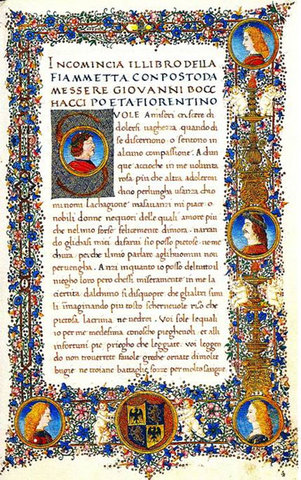 INCOMINCIA IL LIBRO DELLA
FIAMMETTA CONPOSTO DA
MESSERE GIOVANNI BOCC
HACCI POETA FIORENTINO
SVOLE A miseri crescere di
dolersi vaghezza quando di
se discernono o sentono in
alcuno compassione: A dun
que accioche in me volunta
rosa piu che altra adoleren
perlungha usanza
lachagione mi piace o
nobili donne nequori delle quali amore piu
che nelmio forse felicemente dimora narran
do glichasi miei sio posso pietose ne me
chura perche ilmio parlare aglihuomini non
pervengha Anzi inquanto io posso deltutto il
niegho loro miseramente in me la
dalchuno si che glialtri simi
li
pietosa lacrima ne Voi sole lequali
io per me medesima conoscho pieghevoli et alli
infortuni pie priegho che leggiate voi leggen
do non troverrete favole grebe ornate dimolte
bugie ne troiane battaglie per molto sangue
4